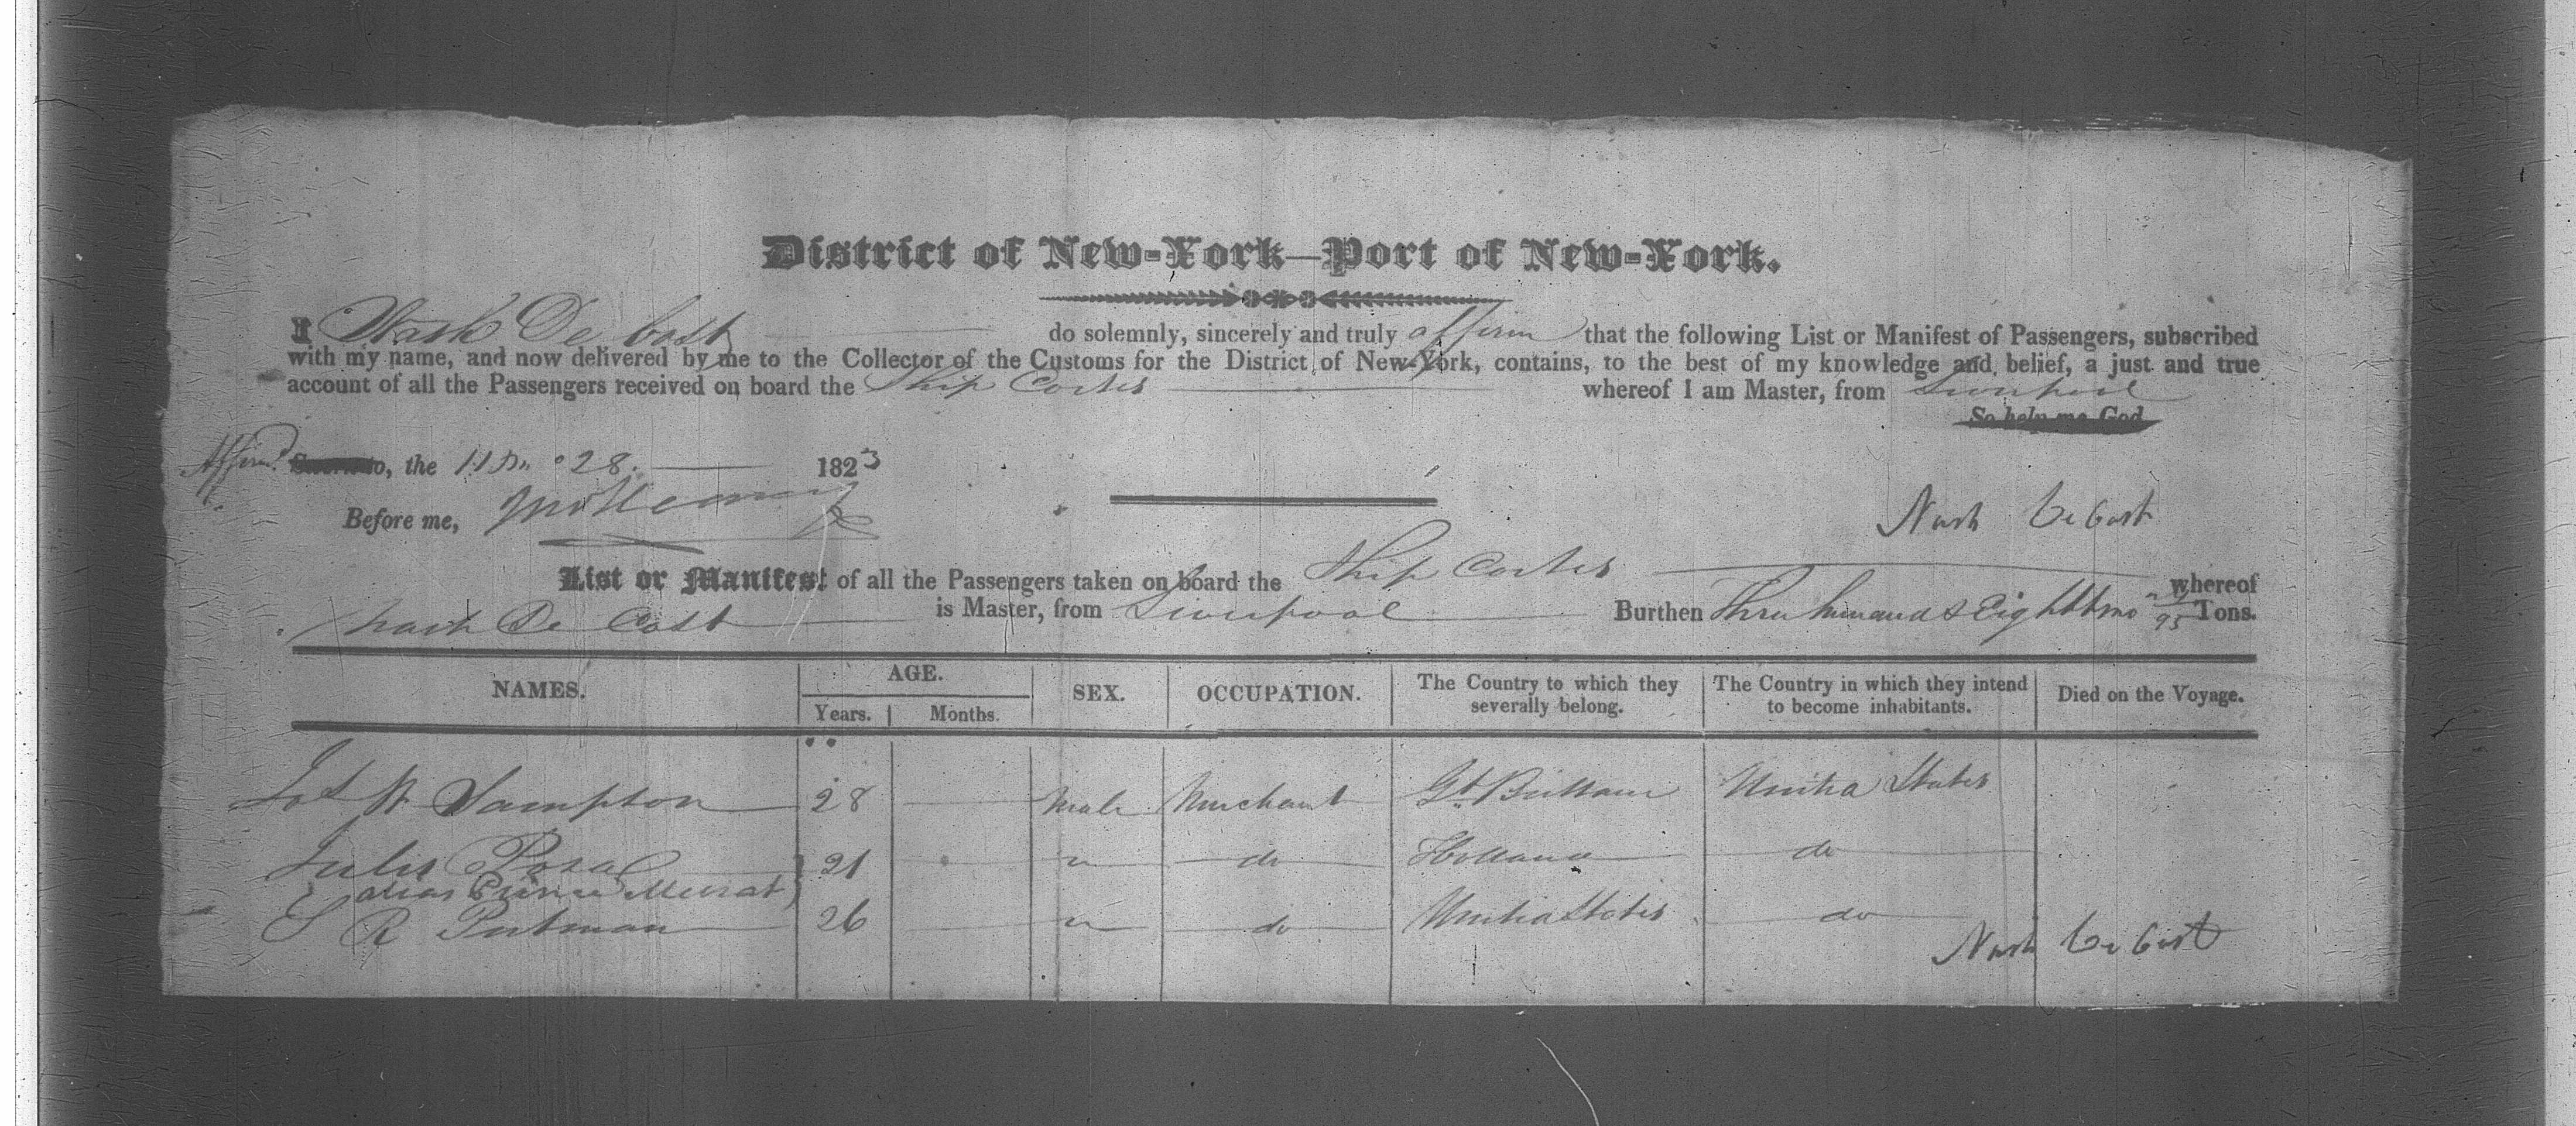 District of New-York—Port of New-York.
I Nash De Cost do solemnly, sincerely and truly affirm that the following List or Manifest of Passengers, subscribed
with my name, and now delivered by me to the Collector of the Customs for the District of New-York, contains, to the best of my knowledge and belief, a just and true
account of all the Passengers received on board the Ship Cortes whereof I am Master, from Liverpool
So help me God
Affirmd Sworn to, the 28. 1823
Before me,
Nash De Cost
List or Manifest of all the Passengers taken on board the Ship Cortes whereof
Nash De Cost is Master, from Liverpool Burthen Three hundred & Eighty two /95 Tons.
NAMES. AGE. SEX. OCCUPATION. The Country to which they severally belong. The Country in which they intend to become inhabitants. Died on the Voyage.
Years. Months.
W Sampson 28 Male Merchant Gt Brittain United States
Jules 21 " do Holland do
alias Prince Meurat
S R Putman 26 " do United States do
Nash De Cost